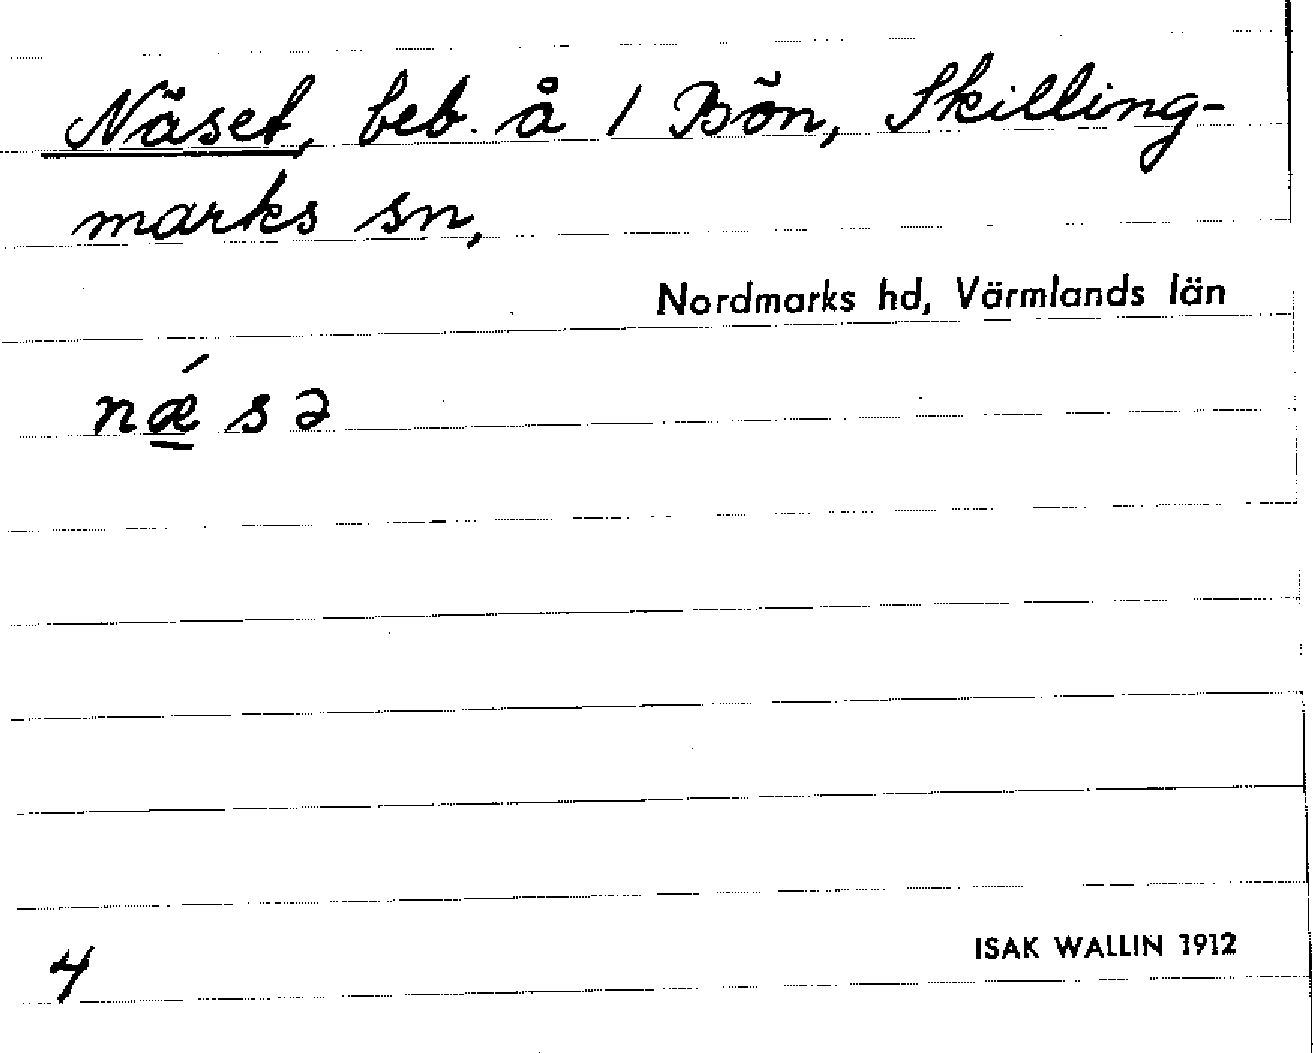 Näset, beb. å 1 Bön, Skilling-
marks sn,
Nordmarks hd, Värmlands län
nǽ̱ s ə
4
ISAK WALLIN 1912